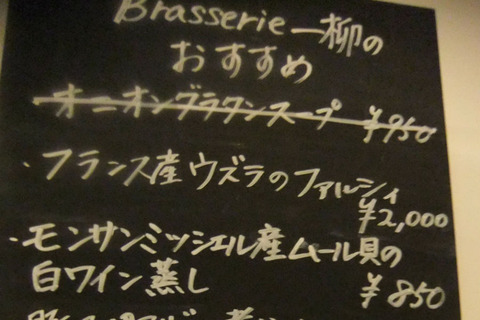 Brasserie一柳の
おすすめ
オニオングラタンスープ ¥950
・フランス産ウズラのファルシィ
¥2,000
・モンサンミッシェル産ムール貝の
白ワイン蒸し ¥850